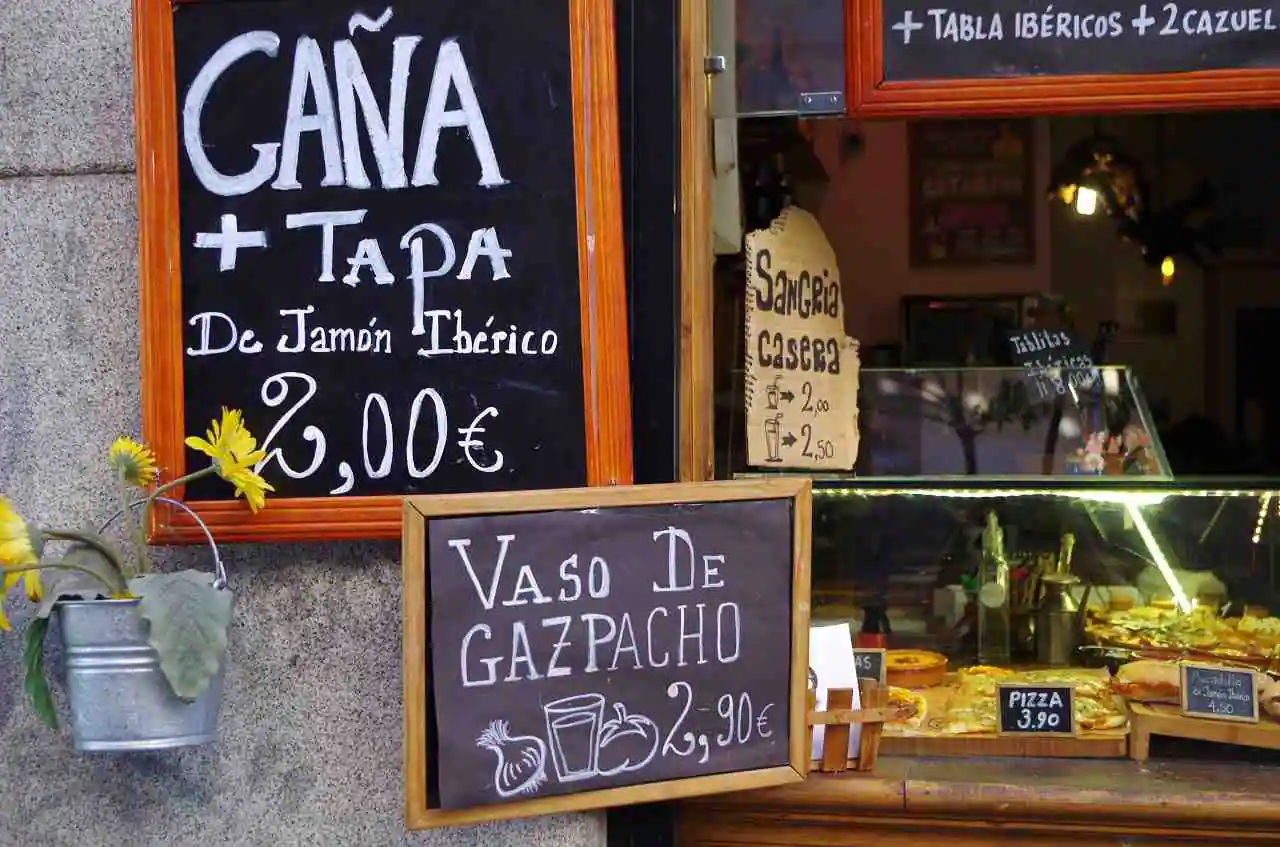 CAÑA
+ TAPA
De Jamón Ibérico
2,00€
+ TABLA IBÉRICOS + 2 CAZUEL
SANGRIA
CASERA
2,00
2,50
Tablitas
Ibéricas
VASO DE
GAZPACHO
2,90€
AS
PIZZA
3.90
de Jamón Ibérico
4.50